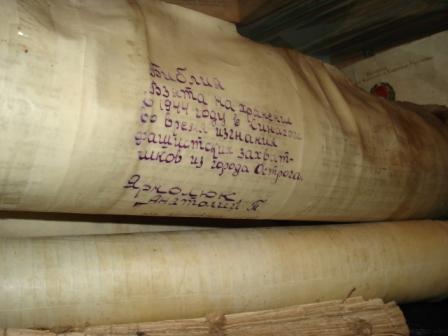 Библия
Взята на хранение
в 1944 году в синагоге
во время изгнания
фашистских захват-
чиков из города Острога.
Ярмолюк